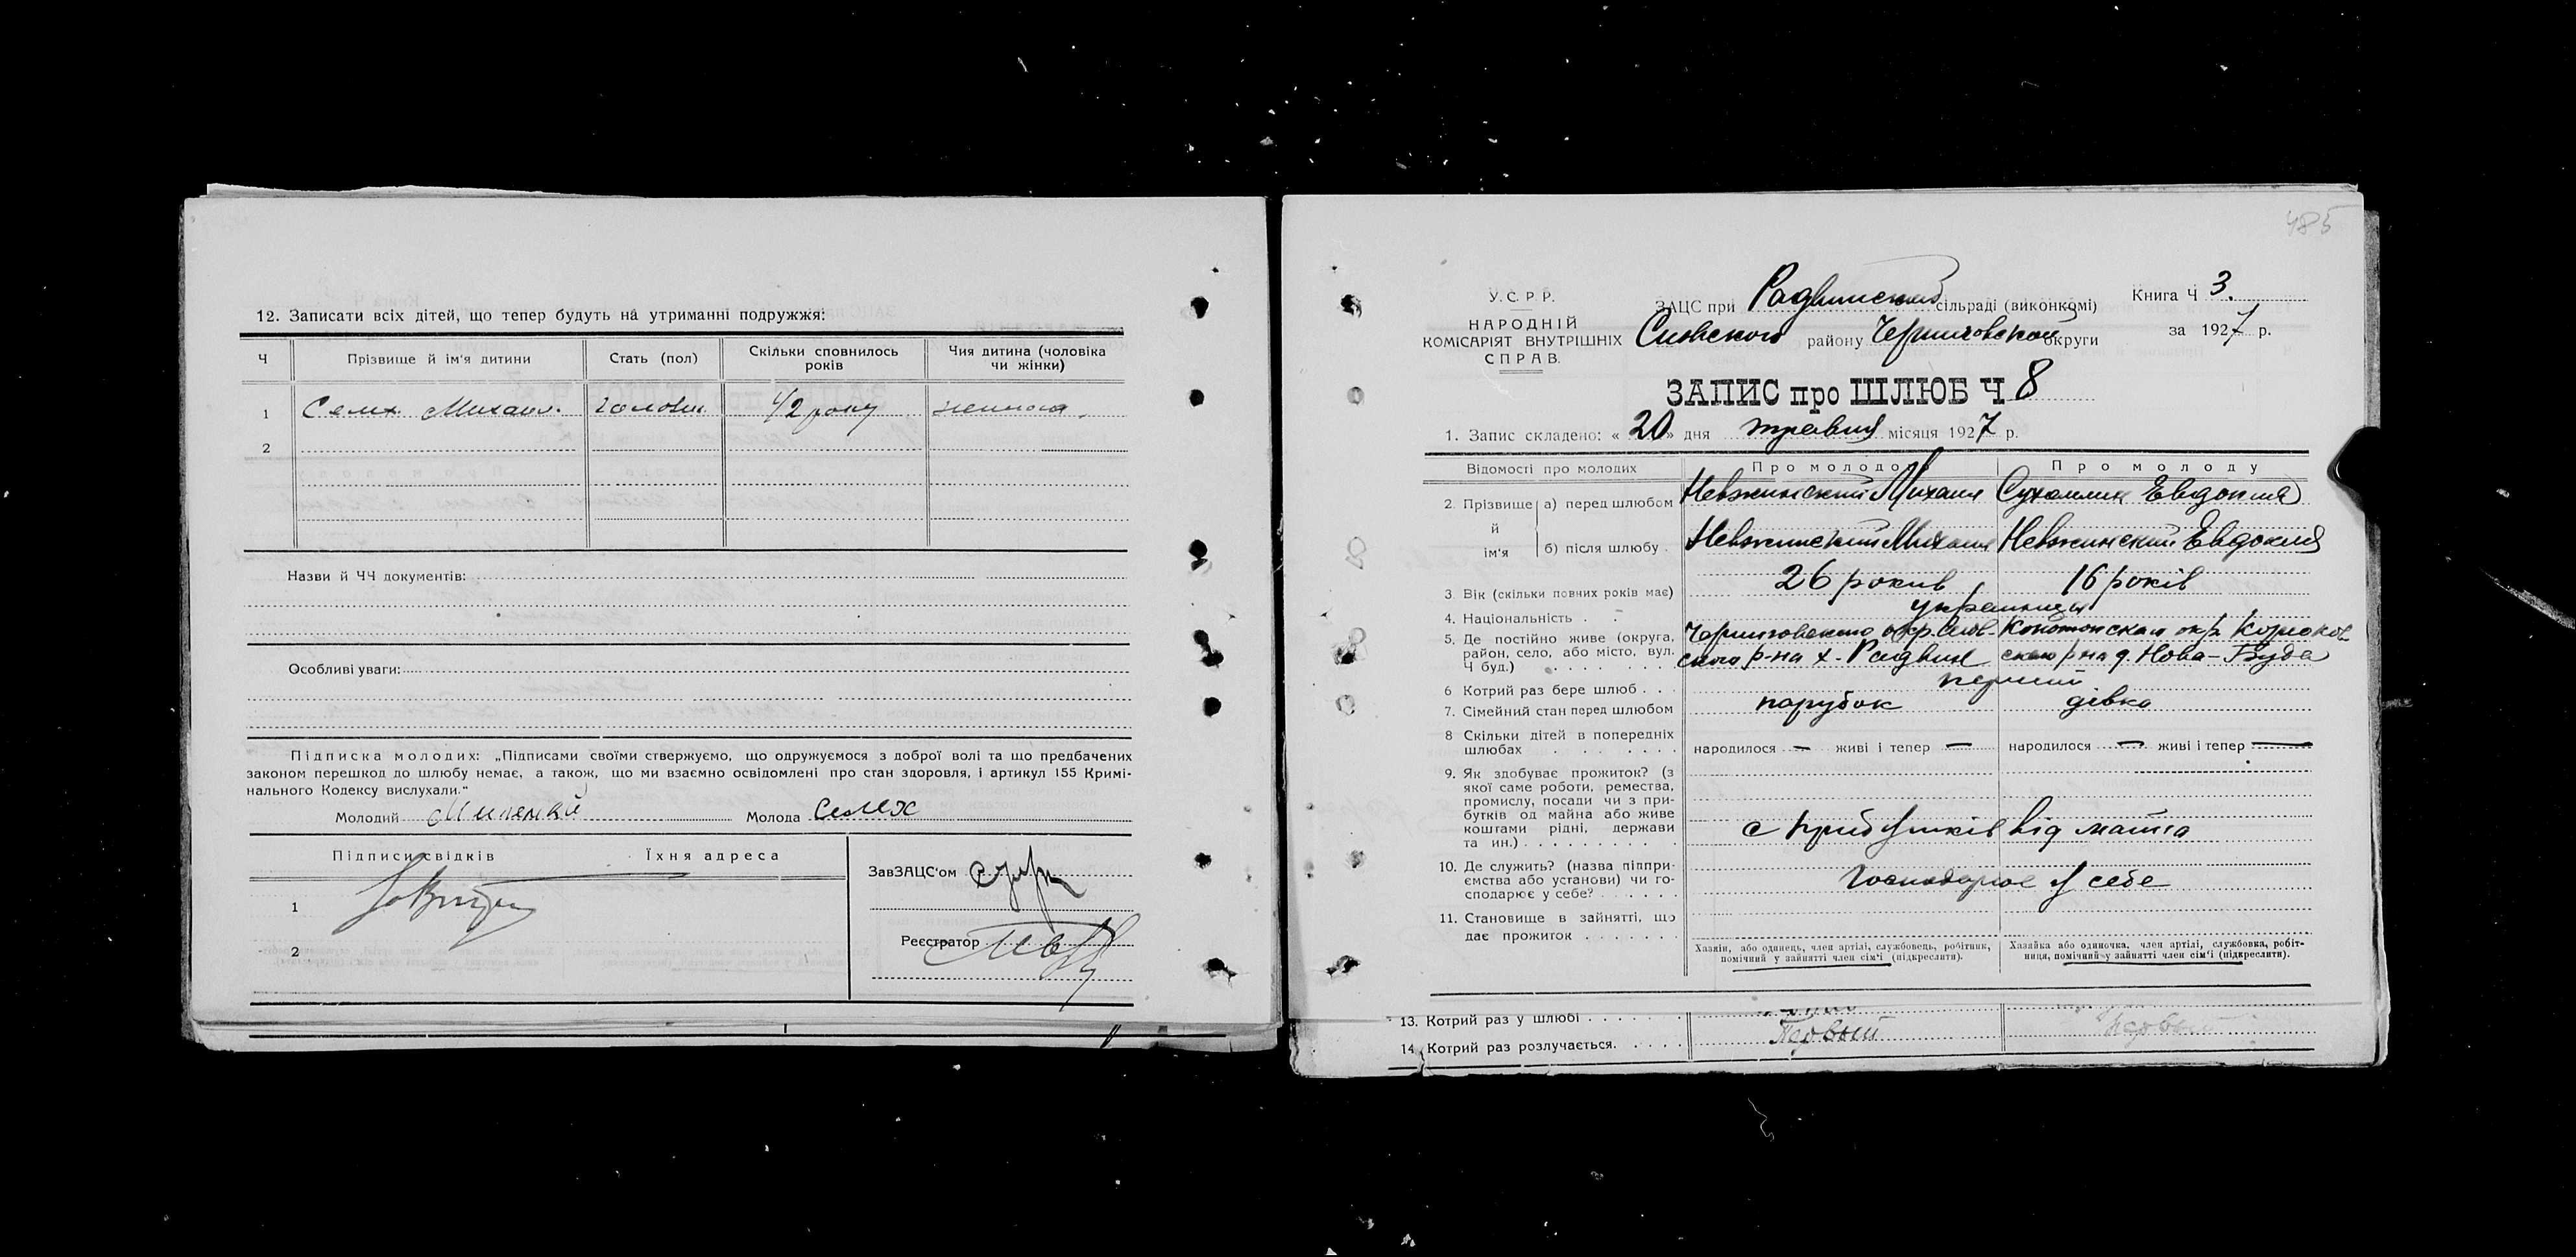 12. Записати всіх дітей, що тепер будуть на утриманні подружжя:
Ч Прізвище й ім'я дитини Стать (пол) Скільки сповнилось років Чия дитина (чоловіка чи жінки)
1 Селих Михаил. 1/2 року
2
Назви й ЧЧ документів:
Особливі уваги:
Підписка молодих: „Підписами своїми стверджуємо, що одружуємося з доброї волі та що предбачених
законом перешкод до шлюбу немає, а також, що ми взаємно освідомлені про стан здоровля, і артикул 155 Кримі-
нального Кодексу вислухали."
Молодий Молода Селих
Підписи свідків Їхня адреса
ЗавЗАЦС'ом
1
Реєстратор
2
485
У.С.Р.Р.
НАРОДНІЙ
КОМІСАРІЯТ ВНУТРІШНІХ
СПРАВ.
ЗАЦС при Радвинский сільраді (виконкомі)
району Черниговской округи
Книга Ч 3.
за 1927 р.
ЗАПИС про ШЛЮБ Ч 8
1. Запис складено: « 20 » дня травня місяця 1927 р.
Відомості про молодих Про молодого Про молоду
2. Прізвище й ім'я а) перед шлюбом Невжинский Михаил Сухомлин Евдокия
б) після шлюбу. Невжинский Михаил Невжинский Евдокия
3 Вік (скільки повних років має) 26 рокив 16 років
4. Національність . українци
5. Де постійно живе (округа, Черниговскою окр. Снов- Конотопская окр.
район, село, або місто, вул. ского р-на х. Радвин р-на д. Нова-Буда
Ч буд.)
6 Котрий раз бере шлюб . . . перший
7. Сімейний стан перед шлюбом парубок дівка
8 Скільки дітей в попередніх
шлюбах народилося — живі і тепер — народилося — живі і тепер —
9. Як здобуває прожиток? (з
якої саме роботи, ремества,
промислу, посади чи з при-
бутків од майна або живе
коштами рідні, держави
та ин.) с прибутків від майна
10. Де служить? (назва підпри-
ємства або установи) чи го-
сподарює у себе? Господарює у себе
11. Становище в зайнятті, що
дає прожиток
Хазяїн, або одинець, член артілі, службовець, робітник,
помічний у зайнятті член сім'ї (підкреслити).
Хазяйка або одиночка, член артілі, службовка, робіт-
ниця, помічний у зайнятті член сім'ї (підкреслити).
13. Котрий раз у шлюбі
14. Котрий раз розлучається. Первый